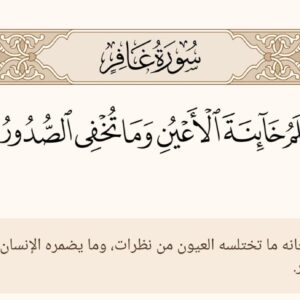 سُورَةُ غَافِرٍ
لَمُ خَآئِنَةَ ٱلْأَعْيُنِ وَمَا تُخْفِى ٱلصُّدُورُ
انه ما تختلسه العيون من نظرات، وما يضمره الإنسان